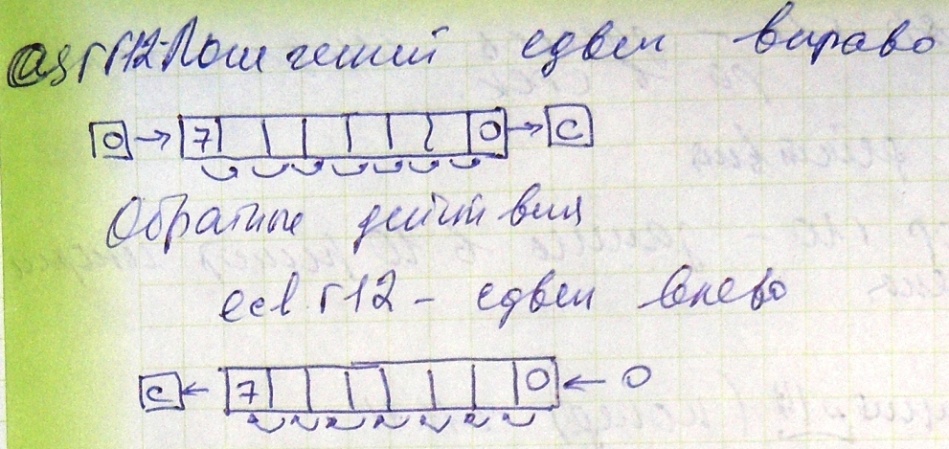 @ asr r12 - Логический сдвиг вправо
0 → 7 0 → C
Обратные действия
lsl r12 - сдвиг влево
C ← 7 0 ← 0